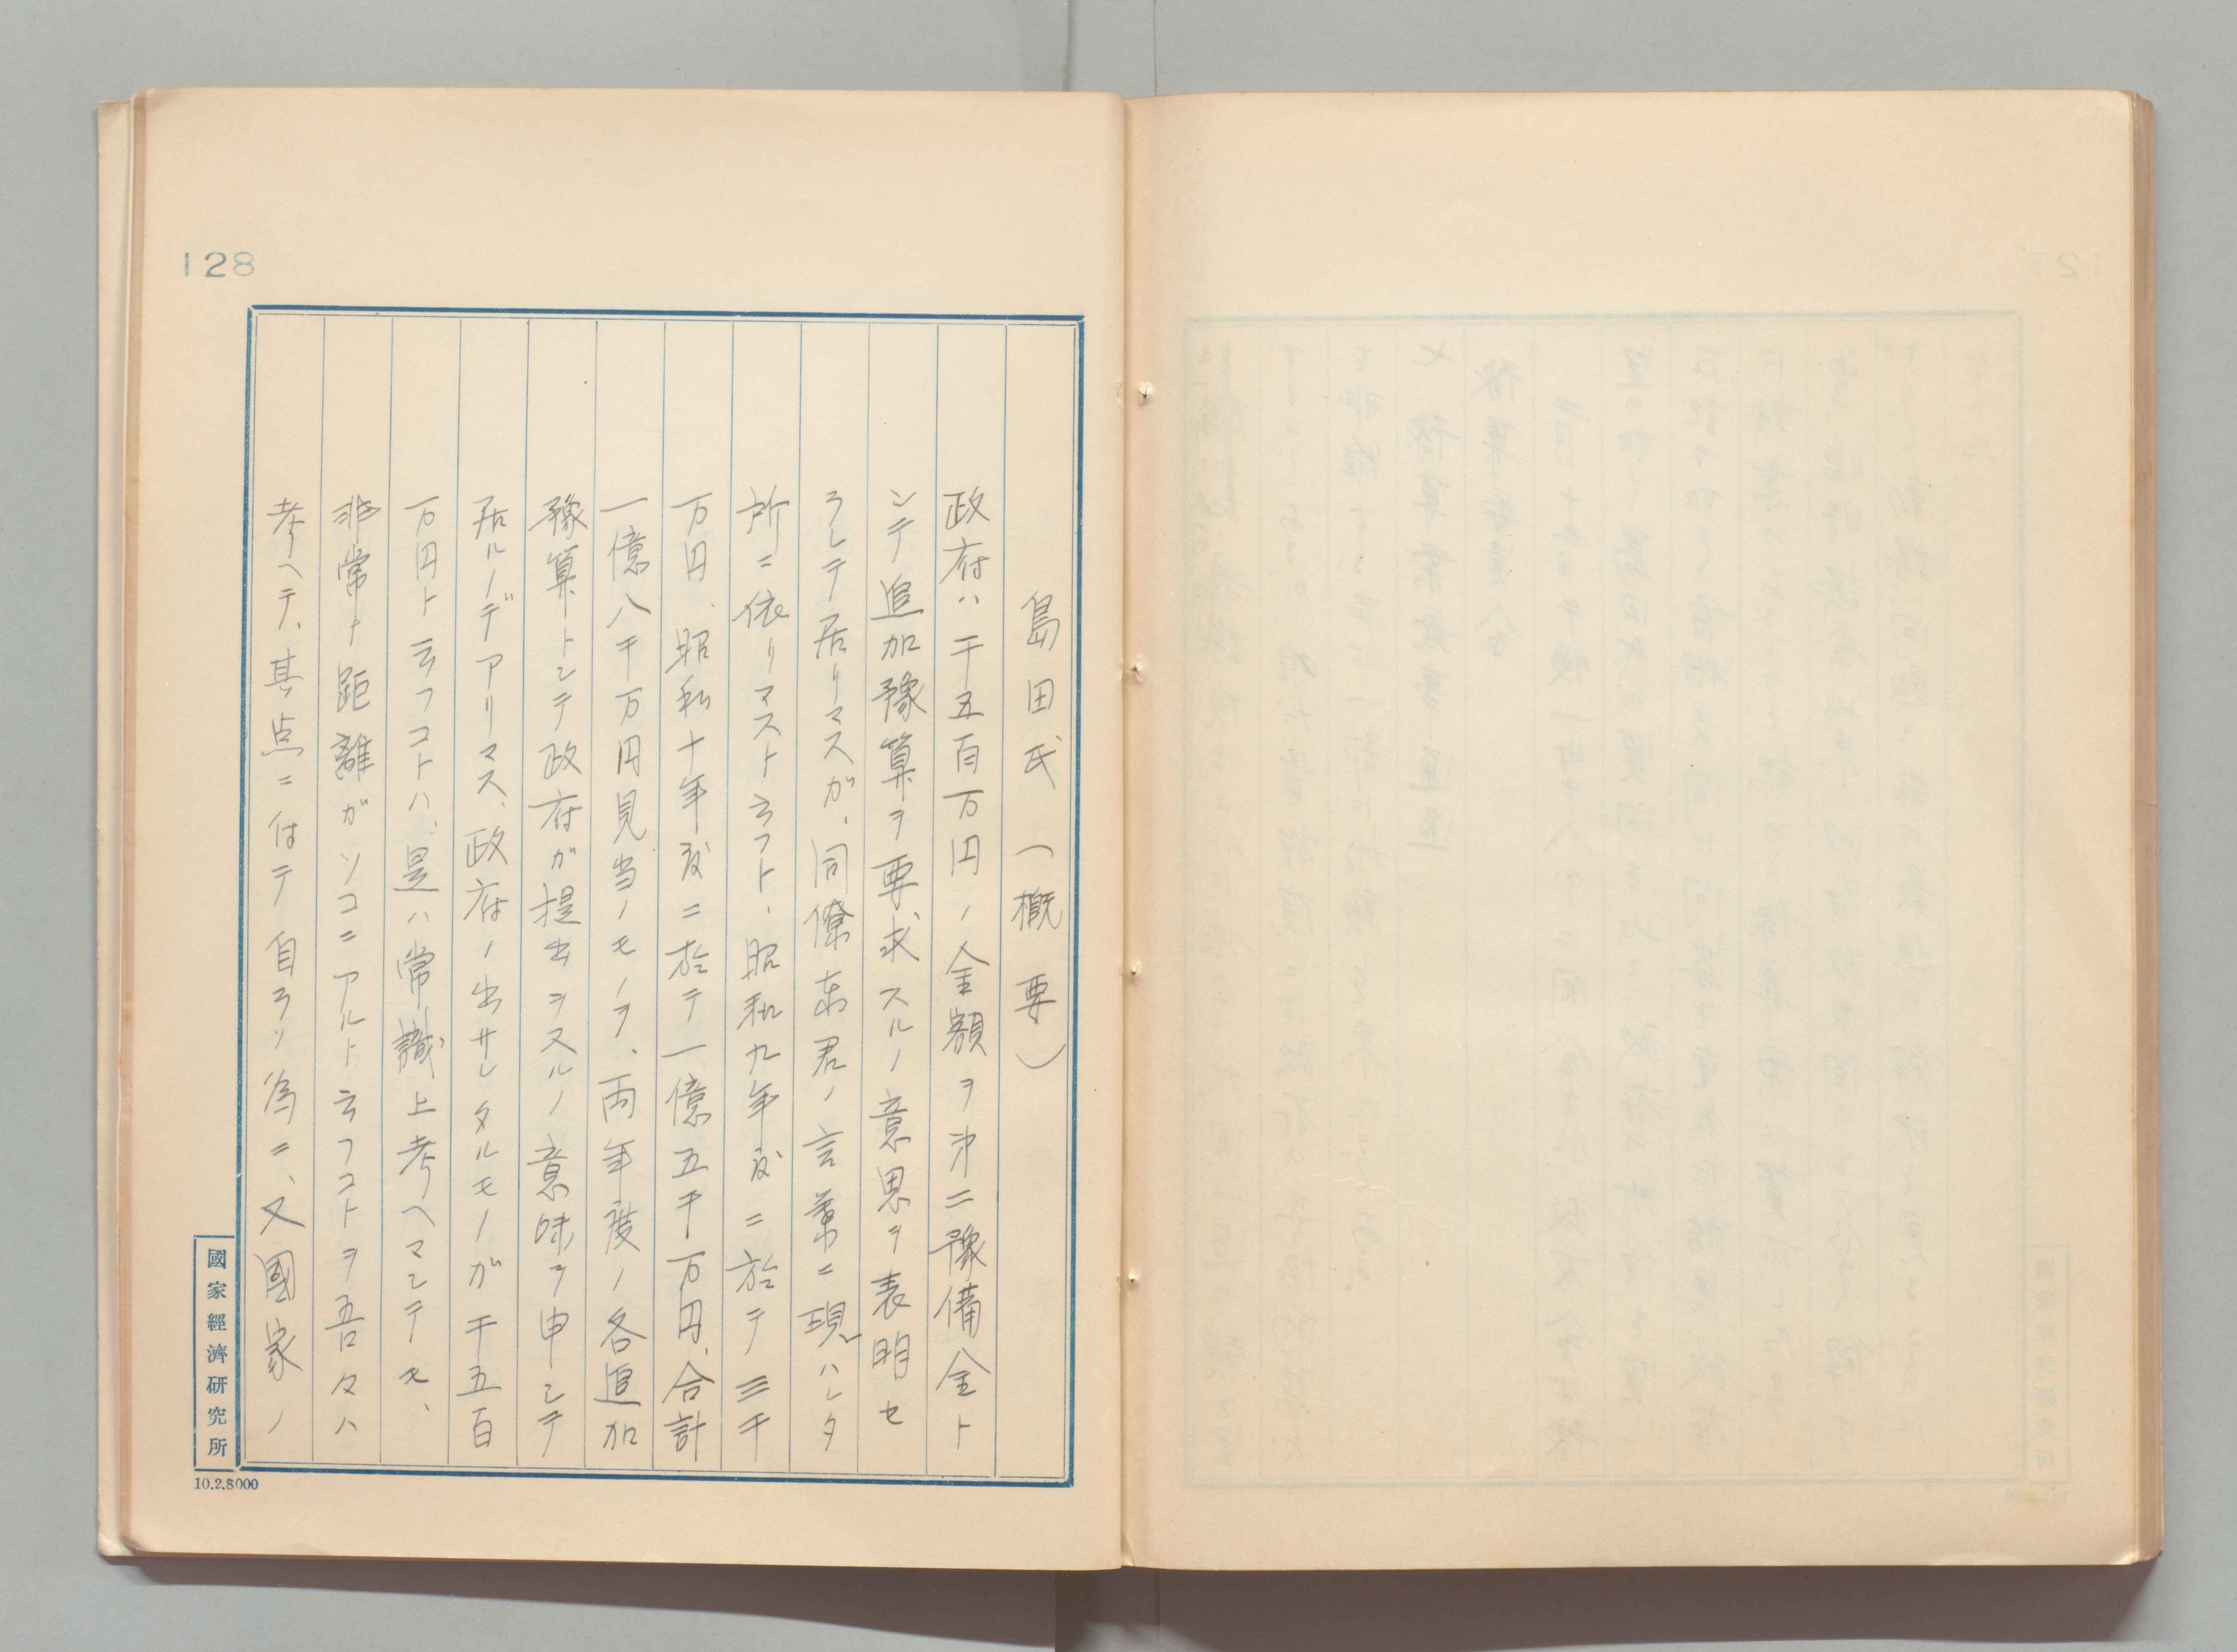 128
島田氏（概要）
政府ハ千五百万円ノ金額ヲ㐧二豫備金ト
シテ追加豫算ヲ要求スルノ意思ヲ表明セ
ラレテ居リマスガ、同僚東君ノ言葉ニ現ハレタ
所ニ依リマスト云フト、昭和九年度ニ於テ三千
万円、昭和十年度ニ於テ一億五千万円、合計
一億八千万円見当ノモノヲ、両年度ノ各追加
豫算トシテ政府ガ提出ヲスルノ意味ヲ申シテ
居ルノデアリマス、政府ノ出サレタルモノガ千五百
万円ト云フコトハ、是ハ常識上考ヘマシテモ、
非常ナ距離ガソコニアルト云フコトヲ吾々ハ
考ヘテ、其点ニ付テ自ラノ為ニ、又國家ノ
國家經濟研究所
10.2.8000